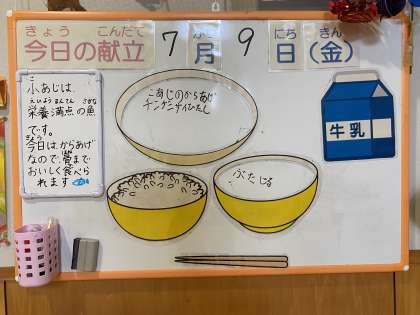 きょう こんだて
今日の献立 7月9日(金)
がつ にち きん
小あじは、
えいようまんてん さかな
栄養満点の魚
です。
きょう
今日は、からあげ
なので、骨まで
おいしく食べら
れます
こあじのからあげ
チンゲンサイひたし
ぶたじる
牛乳